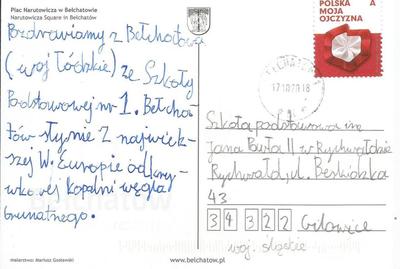 Plac Narutowicza w Bełchatowie
Narutowicza Square in Bełchatów
Pozdrawiamy z Bełchatowa
(woj Łódzkie) ze Szkoły
Podstawowej nr 1. Bełcha-
tów słynie z najwięk-
szej W. Europie odkry-
wkowej kopalni węgla
brunatnego.
malarstwo: Mariusz Gosławski
www.belchatow.pl
POLSKA A
MOJA
OJCZYZNA
BEŁCHATÓW
17.10.2018
Szkoła podstawowa im
Jana Pawła II w Rychwałdzie
Rychwałd, ul. Beskidzka
43
34 322 Gilowice
woj. śląskie